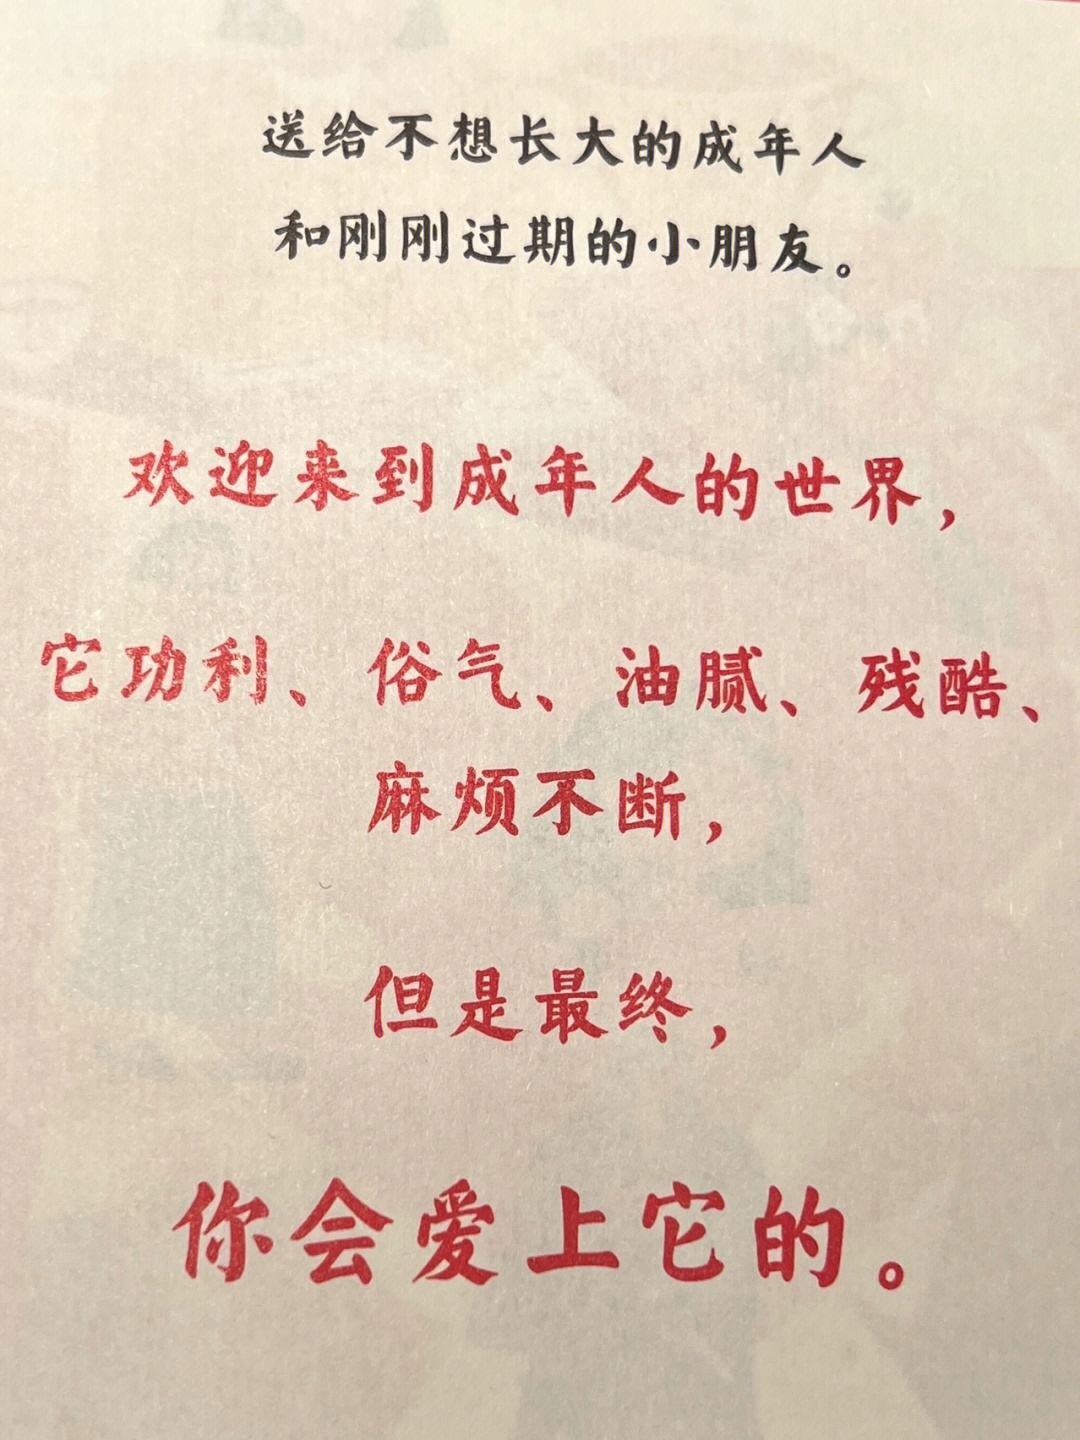 送给不想长大的成年人
和刚刚过期的小朋友。
欢迎来到成年人的世界，
它功利、俗气、油腻、残酷、
麻烦不断，
但是最终，
你会爱上它的。